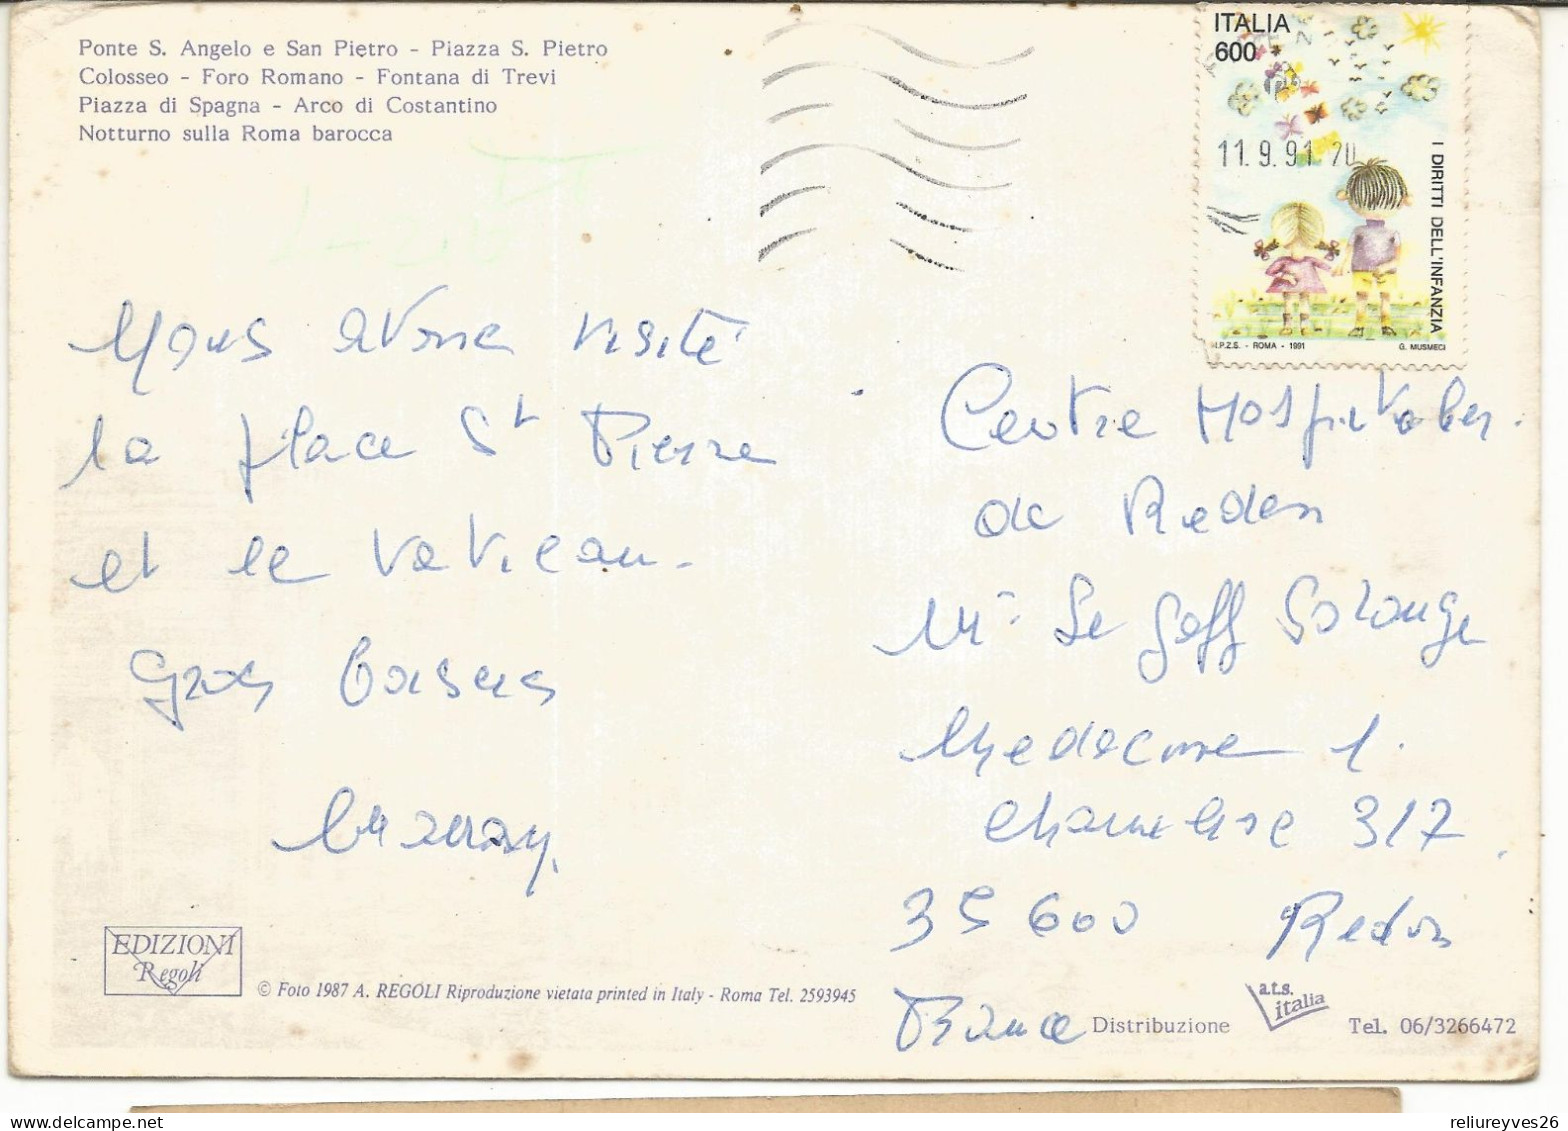 Ponte S. Angelo e San Pietro - Piazza S. Pietro
Colosseo - Foro Romano - Fontana di Trevi
Piazza di Spagna - Arco di Costantino
Notturno sulla Roma barocca
ITALIA
600
11.9.91
I DIRITTI DELL'INFANZIA
I.P.Z.S. - ROMA - 1991
G. MUSMECI
Nous avons visité
la place St Pierre
et le Vatican.
Gros baisers
Centre Hospitalier.
de Redon
Me Le Goff Solange
Medecine 1.
Chambre 317
35600 Redon
France
EDIZIONI
Regoli
© Foto 1987 A. REGOLI Riproduzione vietata printed in Italy - Roma Tel. 2593945
Distribuzione
a.t.s.
italia
Tel. 06/3266472
reliureyves26